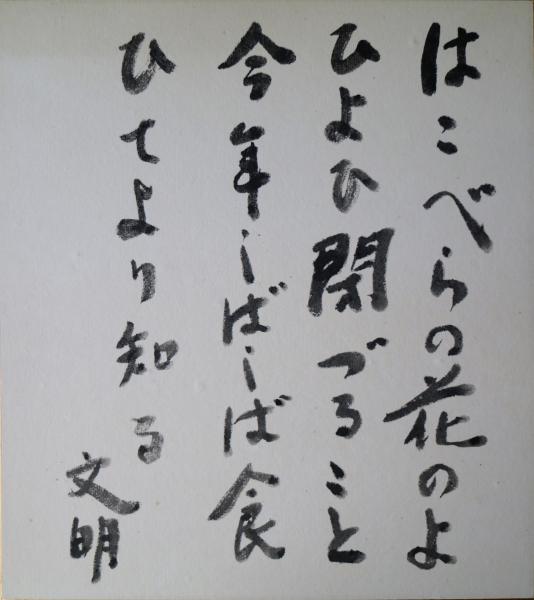 はこべらの花のよ
ひよひ閉づること
今年しばしば食
ひてより知る
文明